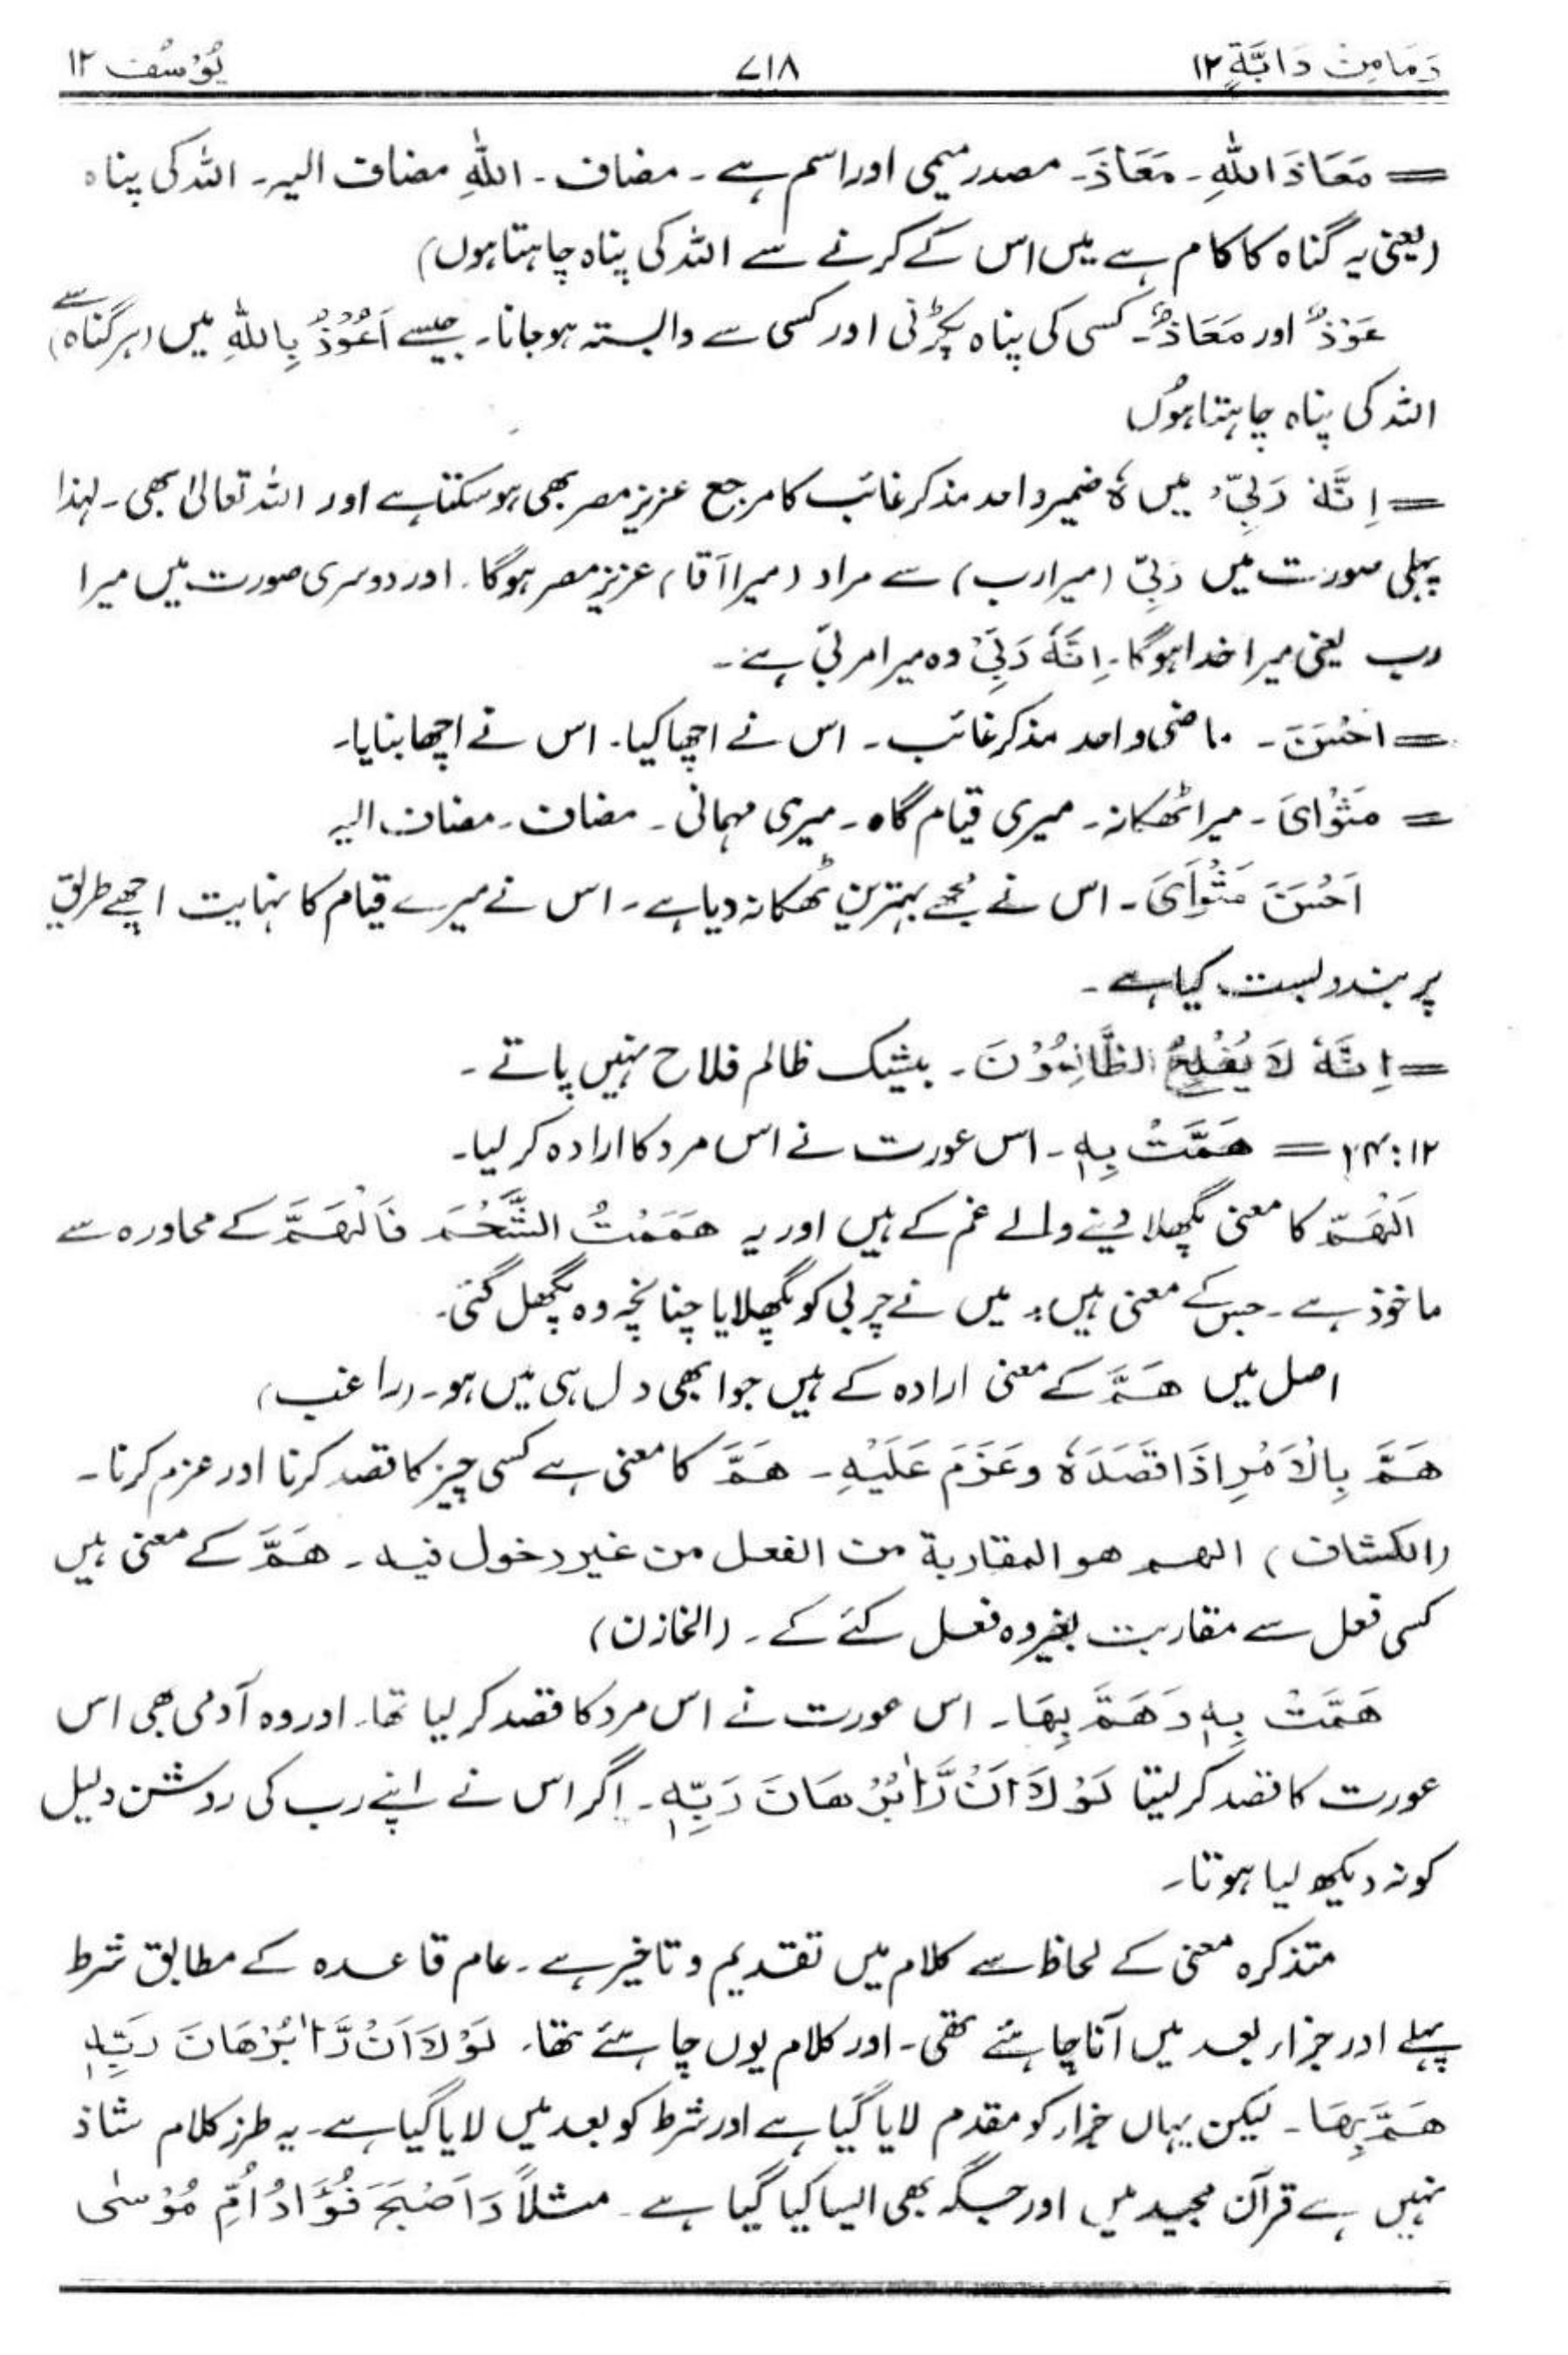 وَمَا مِنْ دَابَّةٍ ۱۲ ۷۱۸ یُوْسُف ۱۲
= مَعَاذَ اللّٰہِ۔ مَعَاذَ۔ مصدر میمی اور اسم ہے۔ مضاف۔ اللّٰہِ مضاف الیہ۔ اللہ کی پناہ
(یعنی یہ گناہ کا کام ہے میں اس کے کرنے سے اللہ کی پناہ چاہتا ہوں)
عَوْذٌ اور مَعَاذٌ۔ کسی کی پناہ پکڑنی اور کسی سے وابستہ ہوجانا۔ جیسے اَعُوْذُ بِاللّٰہِ میں (ہر گناہ سے)
اللہ کی پناہ چاہتا ہوں
= اِنَّہٗ رَبِّیْ میں ہٗ ضمیر واحد مذکر غائب کا مرجع عزیز مصر بھی ہوسکتا ہے اور اللہ تعالیٰ بھی۔ لہذا
پہلی صورت میں رَبِّیْ (میرا رب) سے مراد (میرا آقا) عزیز مصر ہوگا۔ اور دوسری صورت میں میرا
رب یعنی میرا خدا ہوگا۔ اِنَّہٗ رَبِّیْ وہ میرا مربّی ہے۔
= اَحْسَنَ۔ ماضی واحد مذکر غائب۔ اس نے اچھا کیا۔ اس نے اچھا بنایا۔
= مَثْوَایَ۔ میرا ٹھکانہ۔ میری قیام گاہ۔ میری مہمانی۔ مضاف۔ مضاف الیہ
اَحْسَنَ مَثْوَایَ۔ اس نے مجھے بہترین ٹھکانہ دیا ہے۔ اس نے میرے قیام کا نہایت اچھے طریق
پر بندوبست کیا ہے۔
= اِنَّہٗ لَا یُفْلِحُ الظّٰلِمُوْنَ۔ بیشک ظالم فلاح نہیں پاتے۔
۱۲:۲۴ = ھَمَّتْ بِہٖ۔ اس عورت نے اس مرد کا ارادہ کرلیا۔
اَلْھَمّ کا معنی پگھلا دینے والے غم کے ہیں اور یہ ھَمَمْتُ الشَّحْمَ فَانْھَمَّ کے محاورہ سے
ماخوذ ہے۔ جس کے معنی ہیں: میں نے چربی کو پگھلایا چنانچہ وہ پگھل گئی۔
اصل میں ھَمَّ کے معنی ارادہ کے ہیں جو ابھی دل ہی میں ہو۔ (راغب)
ھَمَّ بِالْاَمْرِ اِذَا قَصَدَہٗ وعَزَمَ عَلَیْہِ۔ ھَمَّ کا معنی ہے کسی چیز کا قصد کرنا اور عزم کرنا۔
(الکشاف) الھم ھو المقاربة من الفعل من غیر دخول فیہ۔ ھَمَّ کے معنی ہیں
کسی فعل سے مقاربت بغیر وہ فعل کئے کے۔ (الخازن)
ھَمَّتْ بِہٖ وَھَمَّ بِھَا۔ اس عورت نے اس مرد کا قصد کرلیا تھا۔ اور وہ آدمی بھی اس
عورت کا قصد کرلیتا لَوْلَا اَنْ رَّاٰ بُرْھَانَ رَبِّہٖ۔ اگر اس نے اپنے رب کی روشن دلیل
کو نہ دیکھ لیا ہوتا۔
متذکرہ معنی کے لحاظ سے کلام میں تقدیم و تاخیر ہے۔ عام قاعدہ کے مطابق شرط
پہلے اور جزاء بعد میں آنا چاہئے تھی۔ اور کلام یوں چاہئے تھا۔ لَوْلَا اَنْ رَّاٰ بُرْھَانَ رَبِّہٖ
ھَمَّ بِھَا۔ لیکن یہاں جزاء کو مقدم لایا گیا ہے اور شرط کو بعد میں لایا گیا ہے۔ یہ طرز کلام شاذ
نہیں ہے قرآن مجید میں اور جگہ بھی ایسا کیا گیا ہے۔ مثلاً وَاَصْبَحَ فُؤَادُ اُمِّ مُوْسٰی